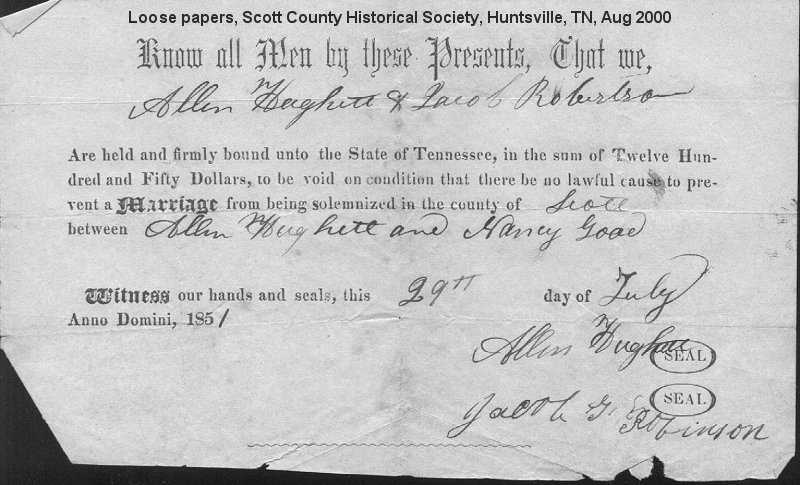 Loose papers, Scott County Historical Society, Huntsville, TN, Aug 2000
Know all Men by these Presents, That we,
Allen Hughett & Jacob Robertson
Are held and firmly bound unto the State of Tennessee, in the sum of Twelve Hun-
dred and Fifty Dollars, to be void on condition that there be no lawful cause to pre-
vent a Marriage from being solemnized in the county of Scott
between Allen Hughett and Nancy Goad
Witness our hands and seals, this 29th day of July
Anno Domini, 1851
Allen Hughett SEAL
SEAL
Jacob G. Robinson